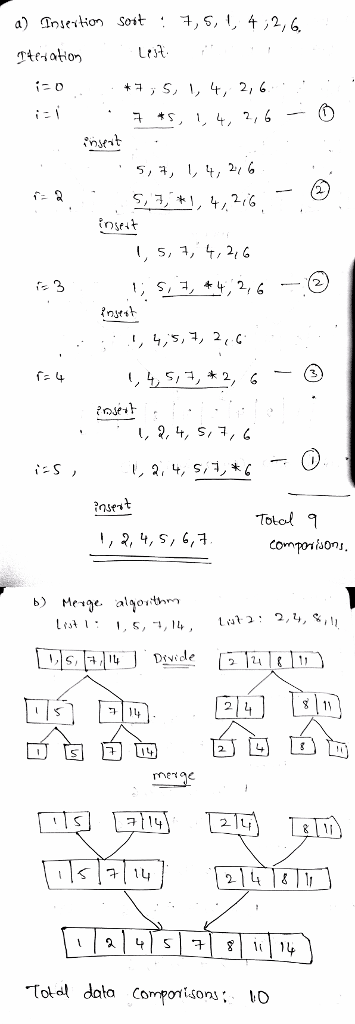 a) Insertion sort : 7, 5, 1, 4, 2, 6.
Iteration List.
i=0 *7, 5, 1, 4, 2, 6
i=1 7 *5, 1, 4, 2, 6 — ①
insert
5, 7, 1, 4, 2, 6
i=2 5, 7, *1, 4, 2, 6 — ②
insert
1, 5, 7, 4, 2, 6
i=3 1, 5, 7, *4, 2, 6 — ②
insert
1, 4, 5, 7, 2, 6
i=4 1, 4, 5, 7, *2, 6 — ③
insert
1, 2, 4, 5, 7, 6
i=5, 1, 2, 4, 5, 7, *6 — ①.
insert
1, 2, 4, 5, 6, 7.
Total 9
comparisons.
b) Merge algorithm
List 1: 1, 5, 7, 14, List 2: 2, 4, 8, 11
1 5 7 14 Divide 2 4 8 11
1 5 7 14 2 4 8 11
1 5 7 14 2 4 8 11
merge
1 5 7 14 2 4 8 11
1 5 7 14 2 4 8 11
1 2 4 5 7 8 11 14
Total data comparisons: 10